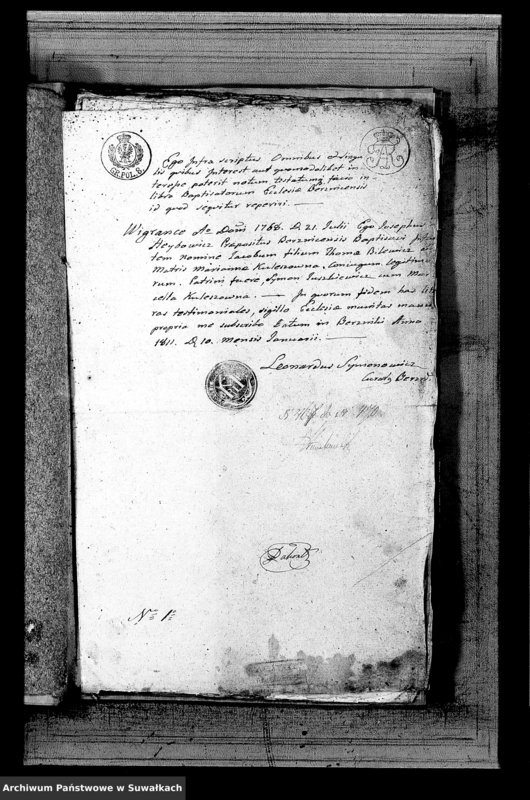 GR.POL.8.
Ego Infra scriptus Omnibus et singu
lis quibus Interest aut quomodolibet in
teresse poterit notum testatumq facio in
libro Baptisatorum Ecclesiæ Berznicensis
id quod sequitur reperiri. —
Wigrance Ao Dom 1768. D. 21. Julii Ego Josephus
Præpositus Berznicensis Baptisavi Infan
tem nomine Jacobum filium Thomæ Bilewicz
Matris Mariannæ Kuleszowna, Conjugum legittimo
rum. Patrini fuere, Symon Juszkiewicz cum Mar
cella Kuleszowna. — In quorum fidem has litte
ras testimoniales, sigillo Ecclesiæ munitas manu
propria me subscribo Datum in Berzniki Anno
1811. D. 10. mensis Januarii. —
Leonardus Symonowicz
Curatq Berzn
No 1o
Archiwum Państwowe w Suwałkach